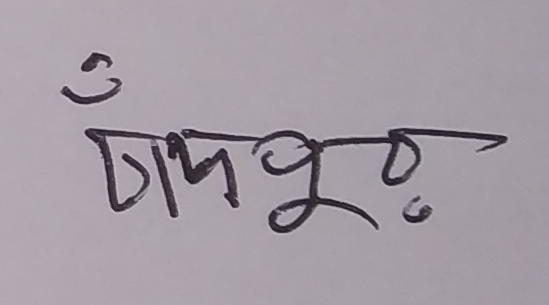 চাঁদপুর